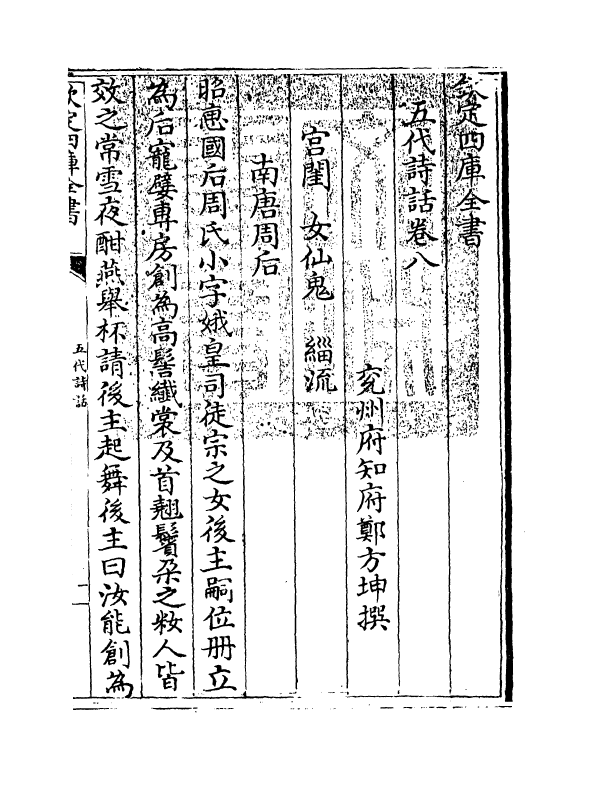 欽定四庫全書
五代詩話卷八
兖州府知府鄭方坤撰
宫閨 女仙鬼 緇流
南唐周后
昭惠國后周氏小字娥皇司徒宗之女後主嗣位冊立
為后寵嬖專房創為高髻纖裳及首翹鬢朶之粧人皆
效之常雪夜酣燕舉杯請後主起舞後主曰汝能創為
欽定四庫全書
五代詩話
一